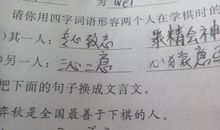 请你用四字词语形容两个人在学棋时的
)其一人:专心致志 聚精会神
)另一人:三心二意 心猿意马
把下面的句子换成文言文。
弈秋是全国最善于下棋的人。